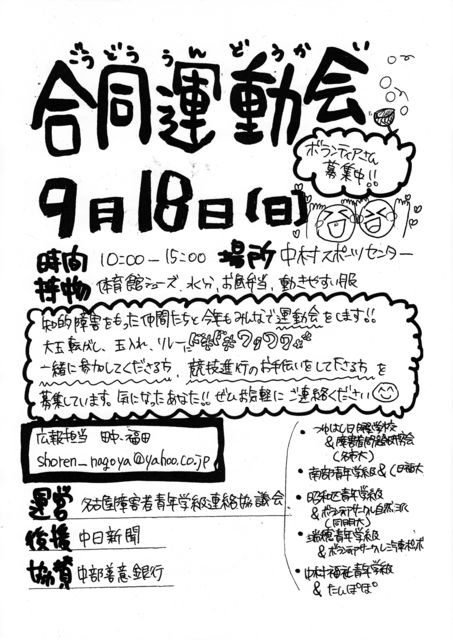 ごうどううんどうかい
合同運動会
ボランティアさん
募集中!!
9月18日(日)
時間 10:00-15:00 場所 中村スポーツセンター
持物 体育館シューズ、水分、お弁当、動きやすい服
知的障害をもった仲間たちと今年もみんなで運動会をします!!
大玉転がし、玉入れ、リレーにドキドキワクワク
一緒に参加してくださる方、競技進行のお手伝いをして下さる方を
募集しています。気になったあなた!!ぜひお気軽にご連絡ください
広報担当 田中、福田
shoren_nagoya@yahoo.co.jp
運営 名古屋障害者青年学級連絡協議会
後援 中日新聞
協賛 中部善意銀行
・つゆはし日曜学校
&障害者問題研究会
(名市大)
・南部青年学級&(日福大
・昭和区青年学級
&ボランティアサークル
(同朋大)
・瑞穂青年学級
&ボランティアサークル
・中村福祉青年学級
&たんぽぽ